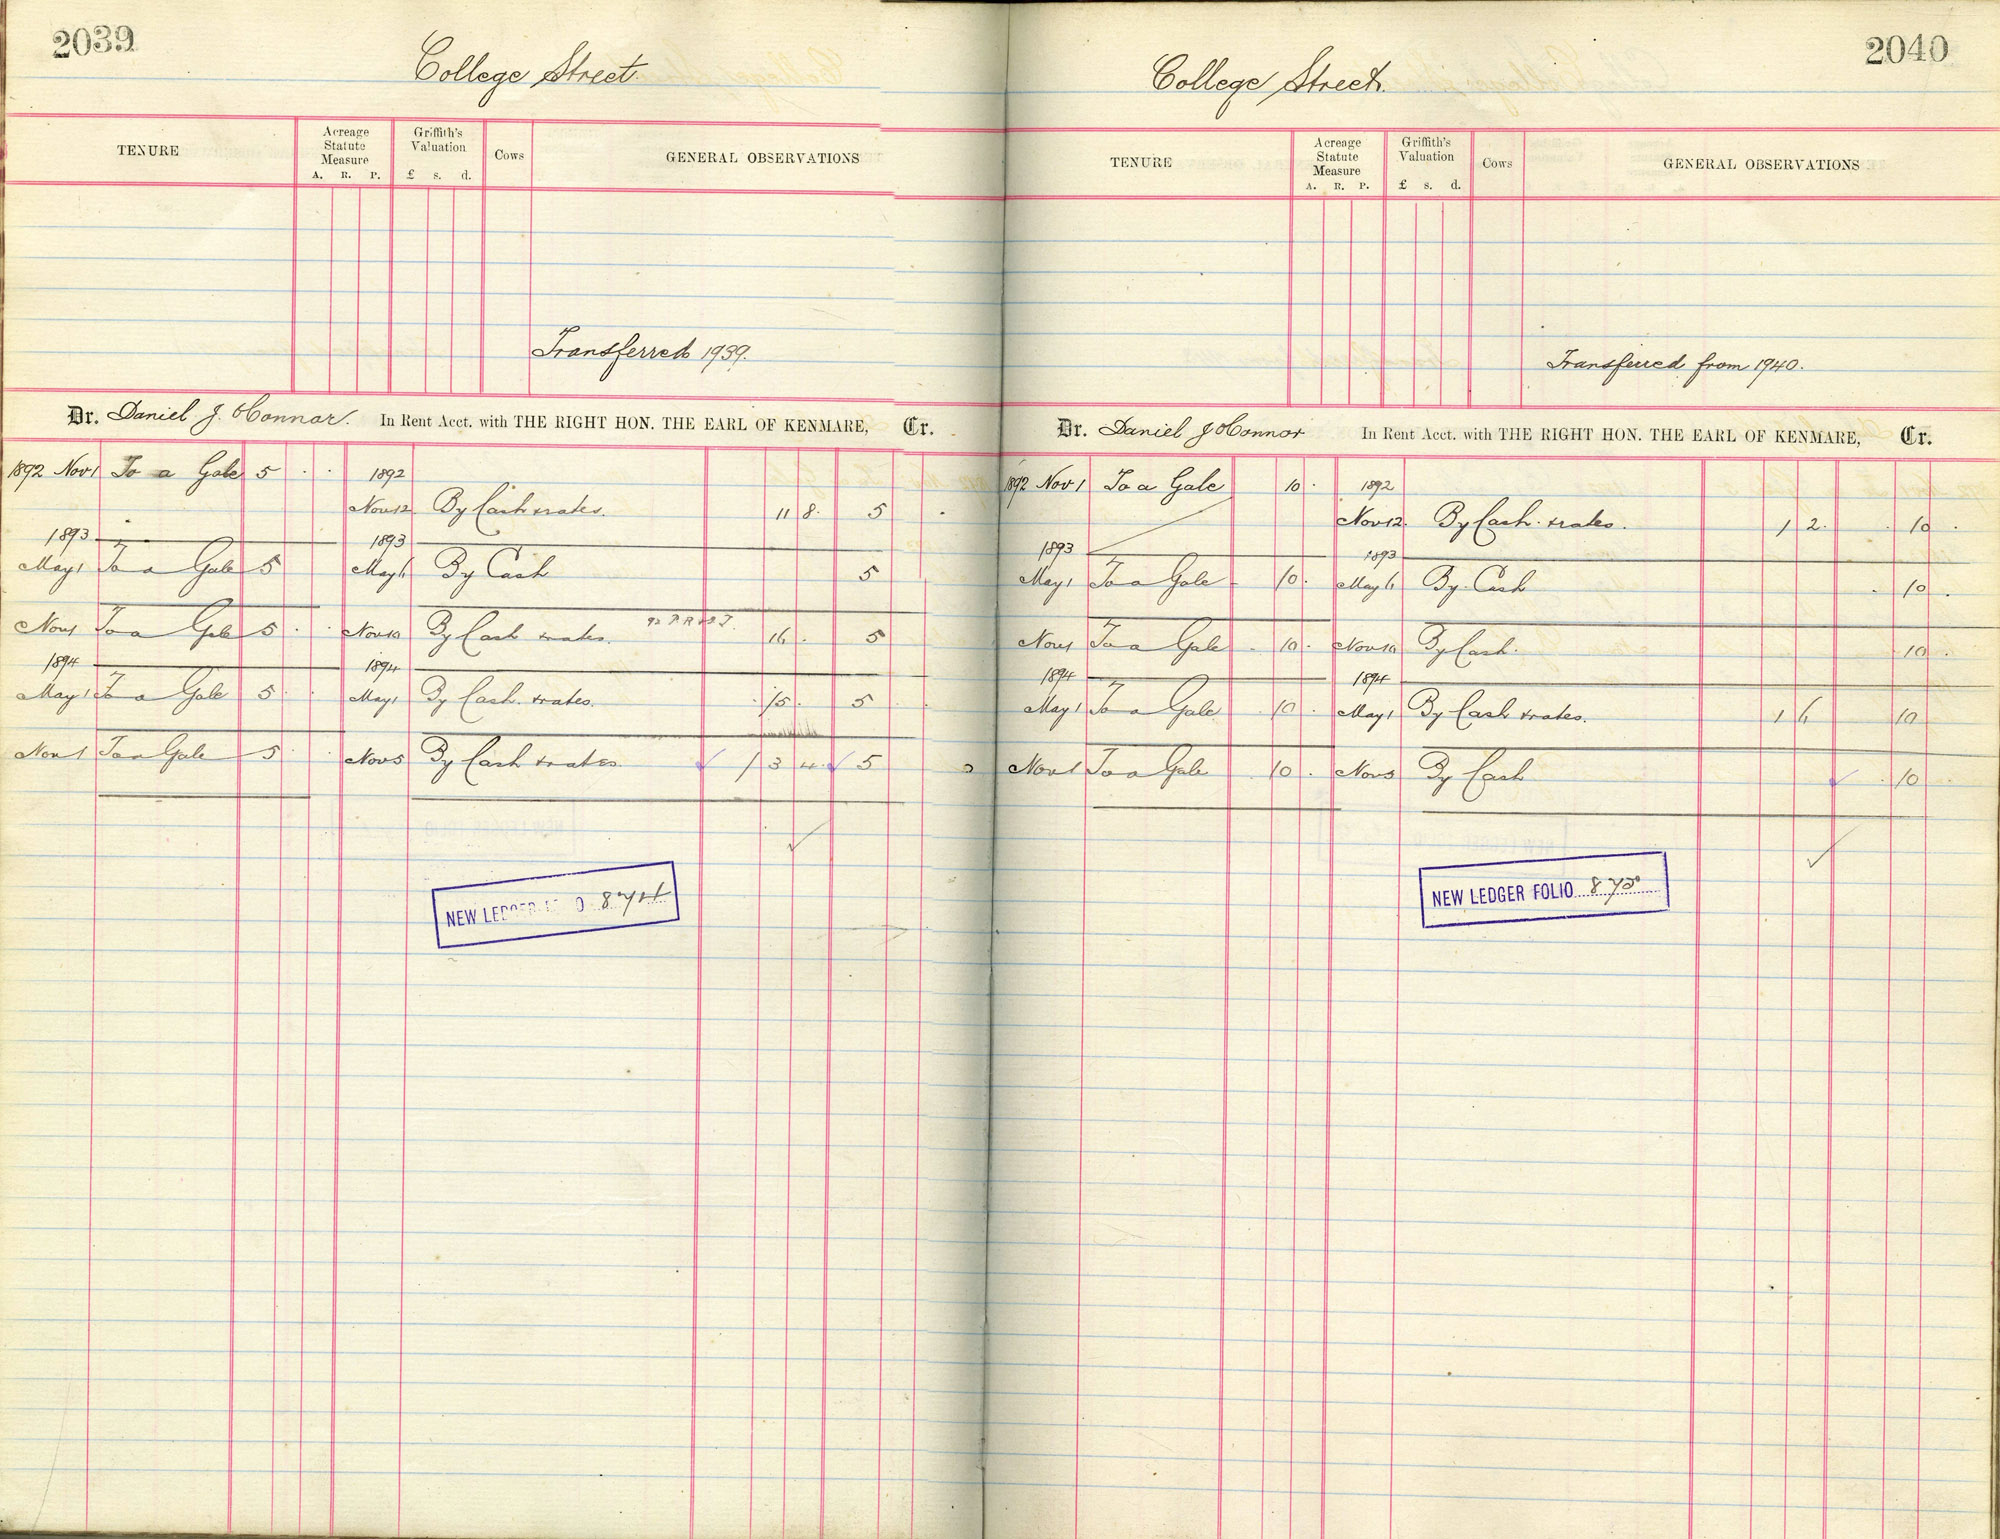 2039
College Street
TENURE
Acreage Statute Measure
A. R. P.
Griffith's Valuation
£ s. d.
Cows
GENERAL OBSERVATIONS
Transferred 1939.
Dr. Daniel J. O'Connor. In Rent Acct. with THE RIGHT HON. THE EARL OF KENMARE, Cr.
1892 Nov 1 To a Gale 5 . . 1892
Nov 12 By Cash & rates. 11 8. 5 .
1893 1893
May 1 To a Gale 5 May 6 By Cash 5
Nov 1 To a Gale 5 . . Nov 10 By Cash & rates. 16 . 5
1894 1894
May 1 To a Gale 5 . . May 1 By Cash. & rates. . 15 . 5
Nov 1 To a Gale 5 . . Nov 5 By Cash & rates 1 3 4. 5
NEW LEDGER
2040
College Street.
TENURE
Acreage Statute Measure
A. R. P.
Griffith's Valuation
£ s. d.
Cows
GENERAL OBSERVATIONS
Transferred from 1940.
Dr. Daniel J O'Connor In Rent Acct. with THE RIGHT HON. THE EARL OF KENMARE, Cr.
1892 Nov 1 To a Gale 10 . 1892
Nov 12. By Cash. & rates. 1 2. . 10 .
1893 1893
May 1 To a Gale 10. May 6 By Cash . 10 .
Nov 1 To a Gale . 10. Nov 10 By Cash. 10 .
1894 1894
May 1 To a Gale 10 . May 1 By Cash & rates. 1 6 10
Nov 1 To a Gale 10 . Nov 5 By Cash . 10
NEW LEDGER FOLIO